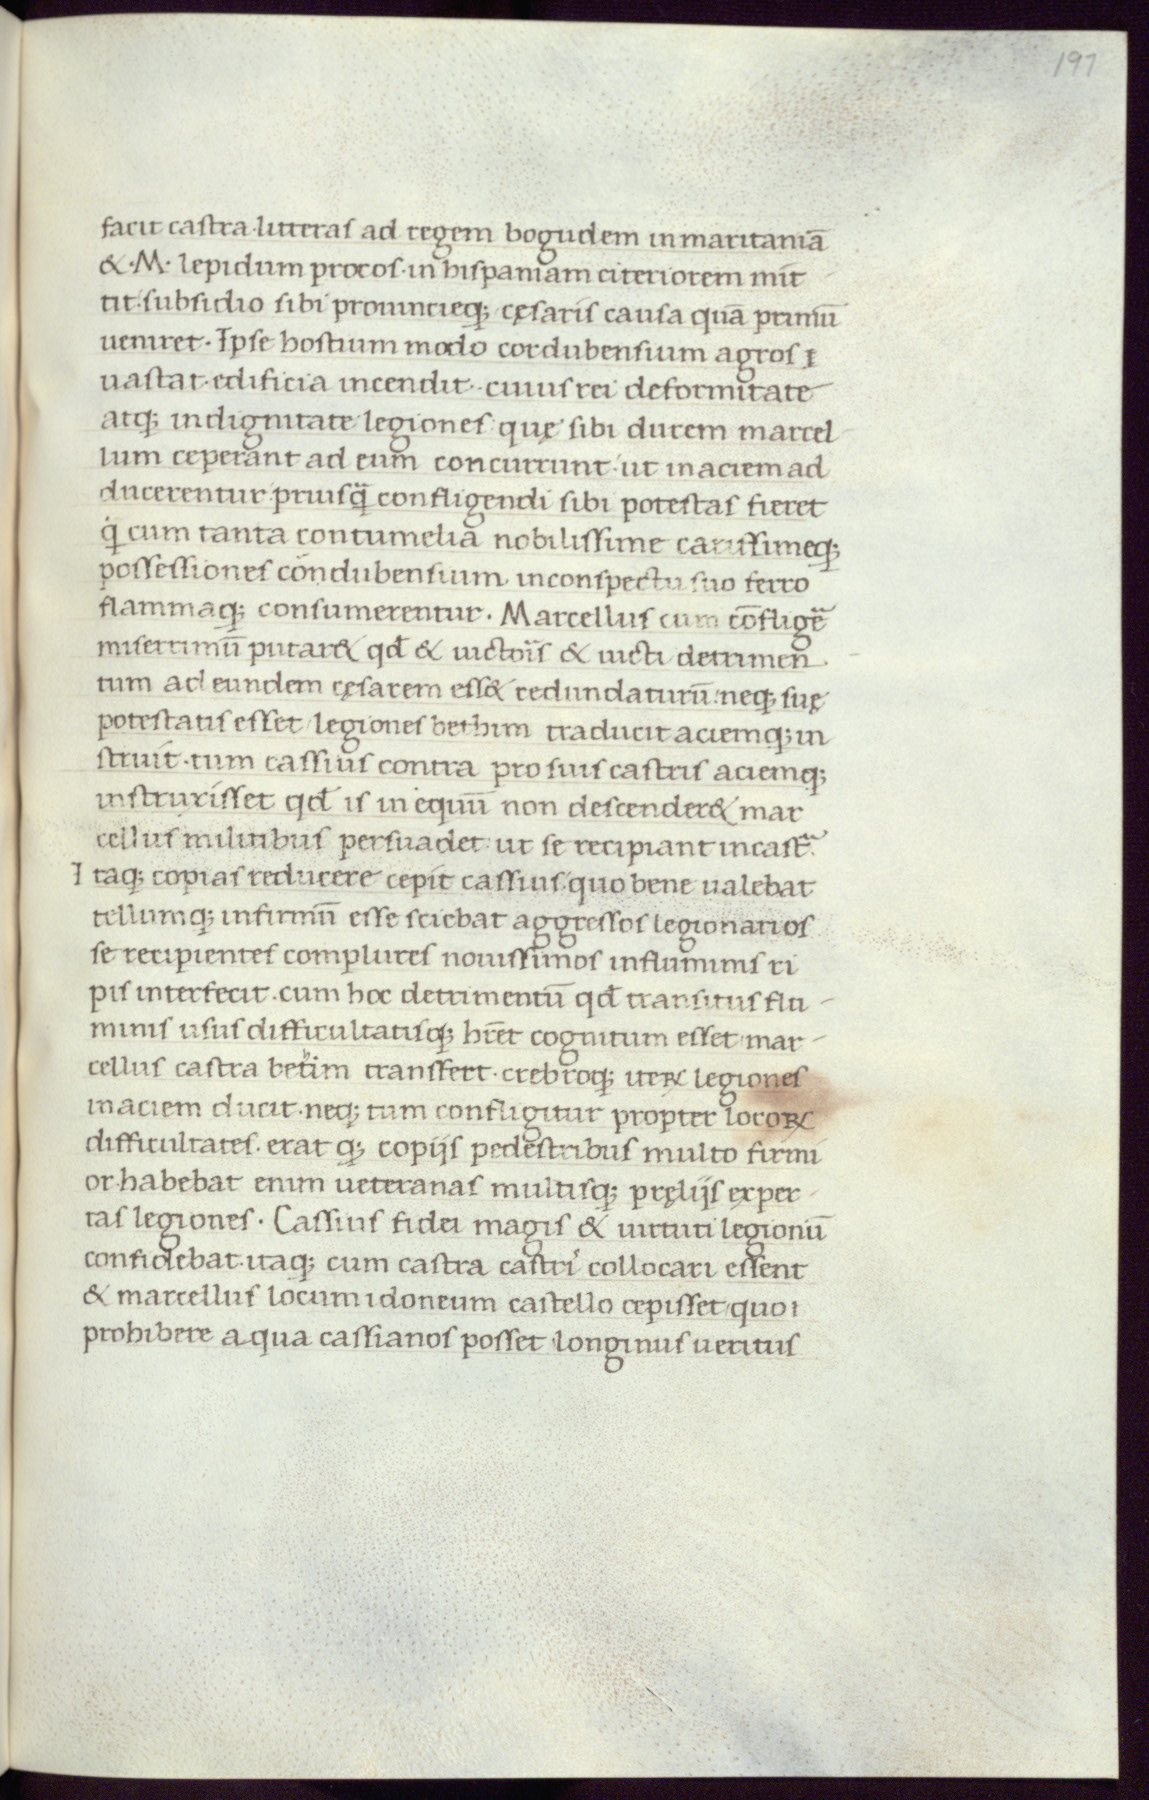 197
facit castra·litteras ad regem bogudem in maritaniā
&·M· lepidum procos·in hispaniam citeriorem mit
tit·subsidio sibi prouincieq; cęsaris causa quā primū
ueniret·Ipse hostium modo cordubensium agros
uastat·edificia incendit·cuius rei deformitate
atq; indignitate legiones quę sibi ducem marcel
lum ceperant ad eum concurrunt·ut in aciem ad
ducerentur priusq̄ confligendi sibi potestas fieret
q̇ cum tanta contumelia nobilissime carissimeq;
possessiones condubensium in conspectu suo ferro
flammaq; consumerentur· Marcellus cum cōfligē
miserrimū putar& qđ & uictoris & uicti detrimen
tum ad eundem cęsarem ess& redundaturū·neq; suę
potestatis esset legiones bethim traducit aciemq; in
struit·tum cassius contra pro suis castris aciemq;
instruxisset qđ is in equū non descender& mar
cellus militibus persuadet ut se recipiant in castᵃ
Itaq; copias reducere cepit cassius quo bene ualebat
tellumq; infirmū esse sciebat aggressos legionarios
se recipientes complures nouissimos in fluminis ri
pis interfecit·cum hoc detrimentū qđ transitus flu
minis usus difficultatisq; hret̄ cognitum esset mar
cellus castra betim transfert·crebroq; uterꝝ legiones
in aciem ducit·neq; tum confligitur propter locoꝝ
difficultates·erat q; copijs pedestribus multo firmi
or·habebat enim ueteranas multisq; pręlijs exper
tas legiones· Cassius fidei magis & uirtuti legionū
confidebat·itaq; cum castra castri collocari essent
& marcellus locum idoneum castello cepisset quo
prohibere aqua cassianos posset longinus ueritus